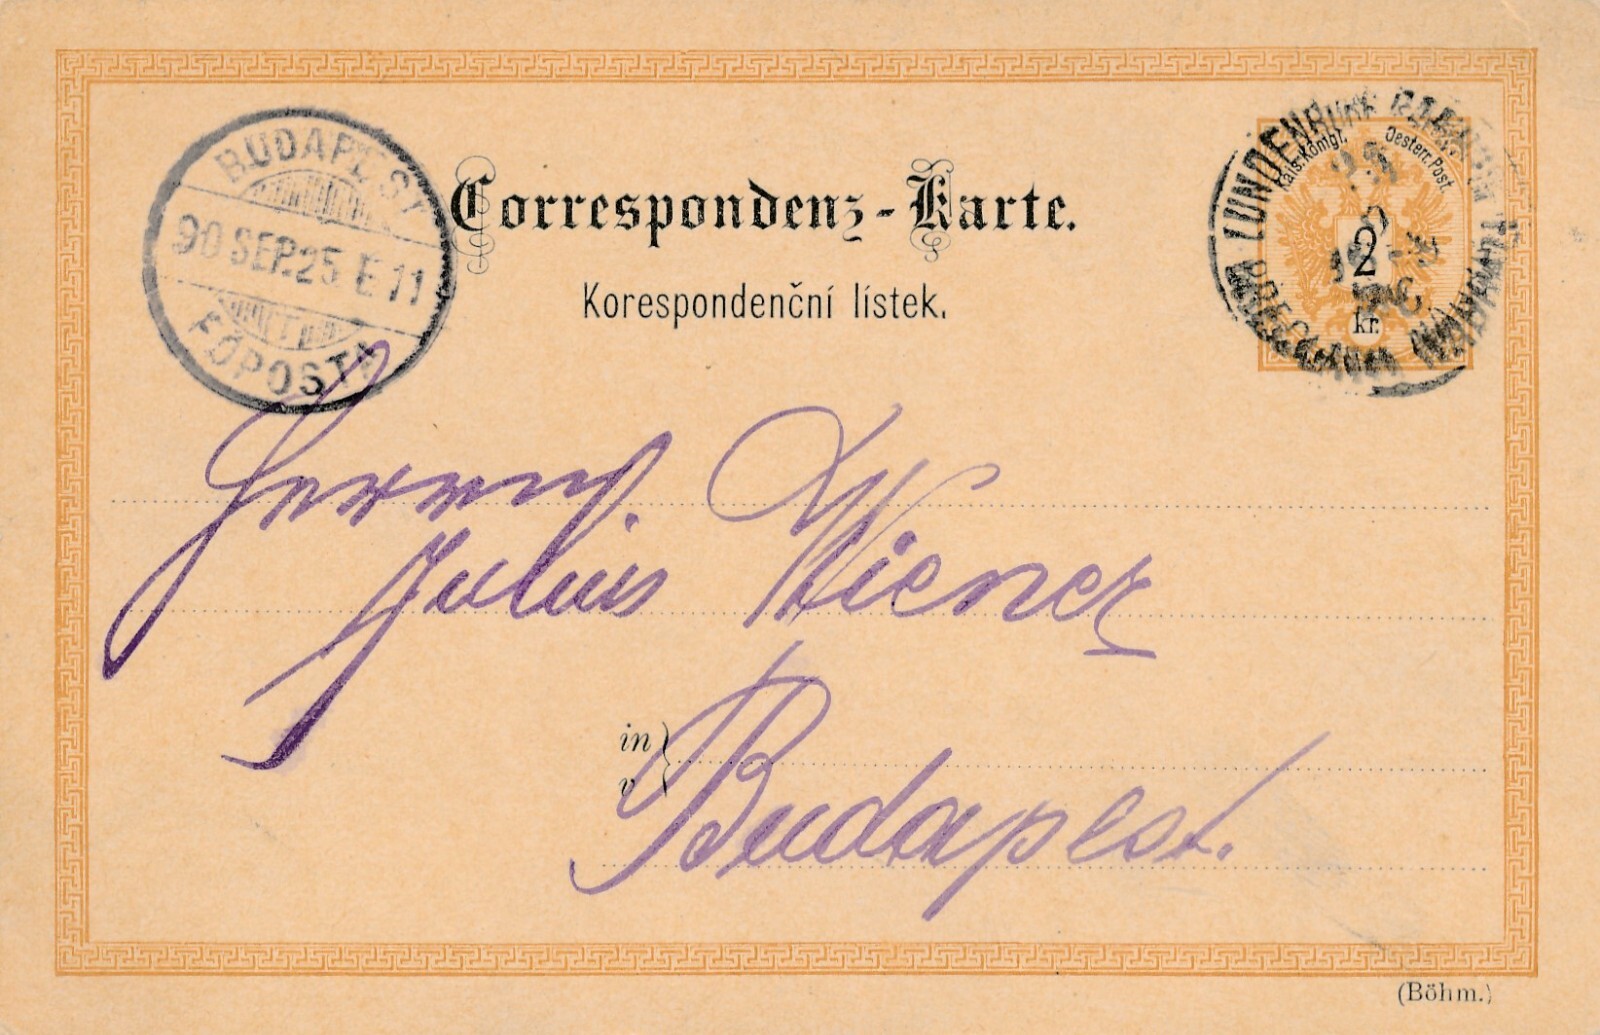 BUDAPEST
90 SEP. 25 E 11
FŐPOSTA
Correspondenz-Karte.
Korespondenční lístek.
LUNDENBURG BAHNHOF
Kais. Königl. Oesterr. Post.
2
kr.
BŘECLAVA NÁDRAŽÍ
Herrn
Julius Wiener
in
v
Budapest.
(Böhm.)